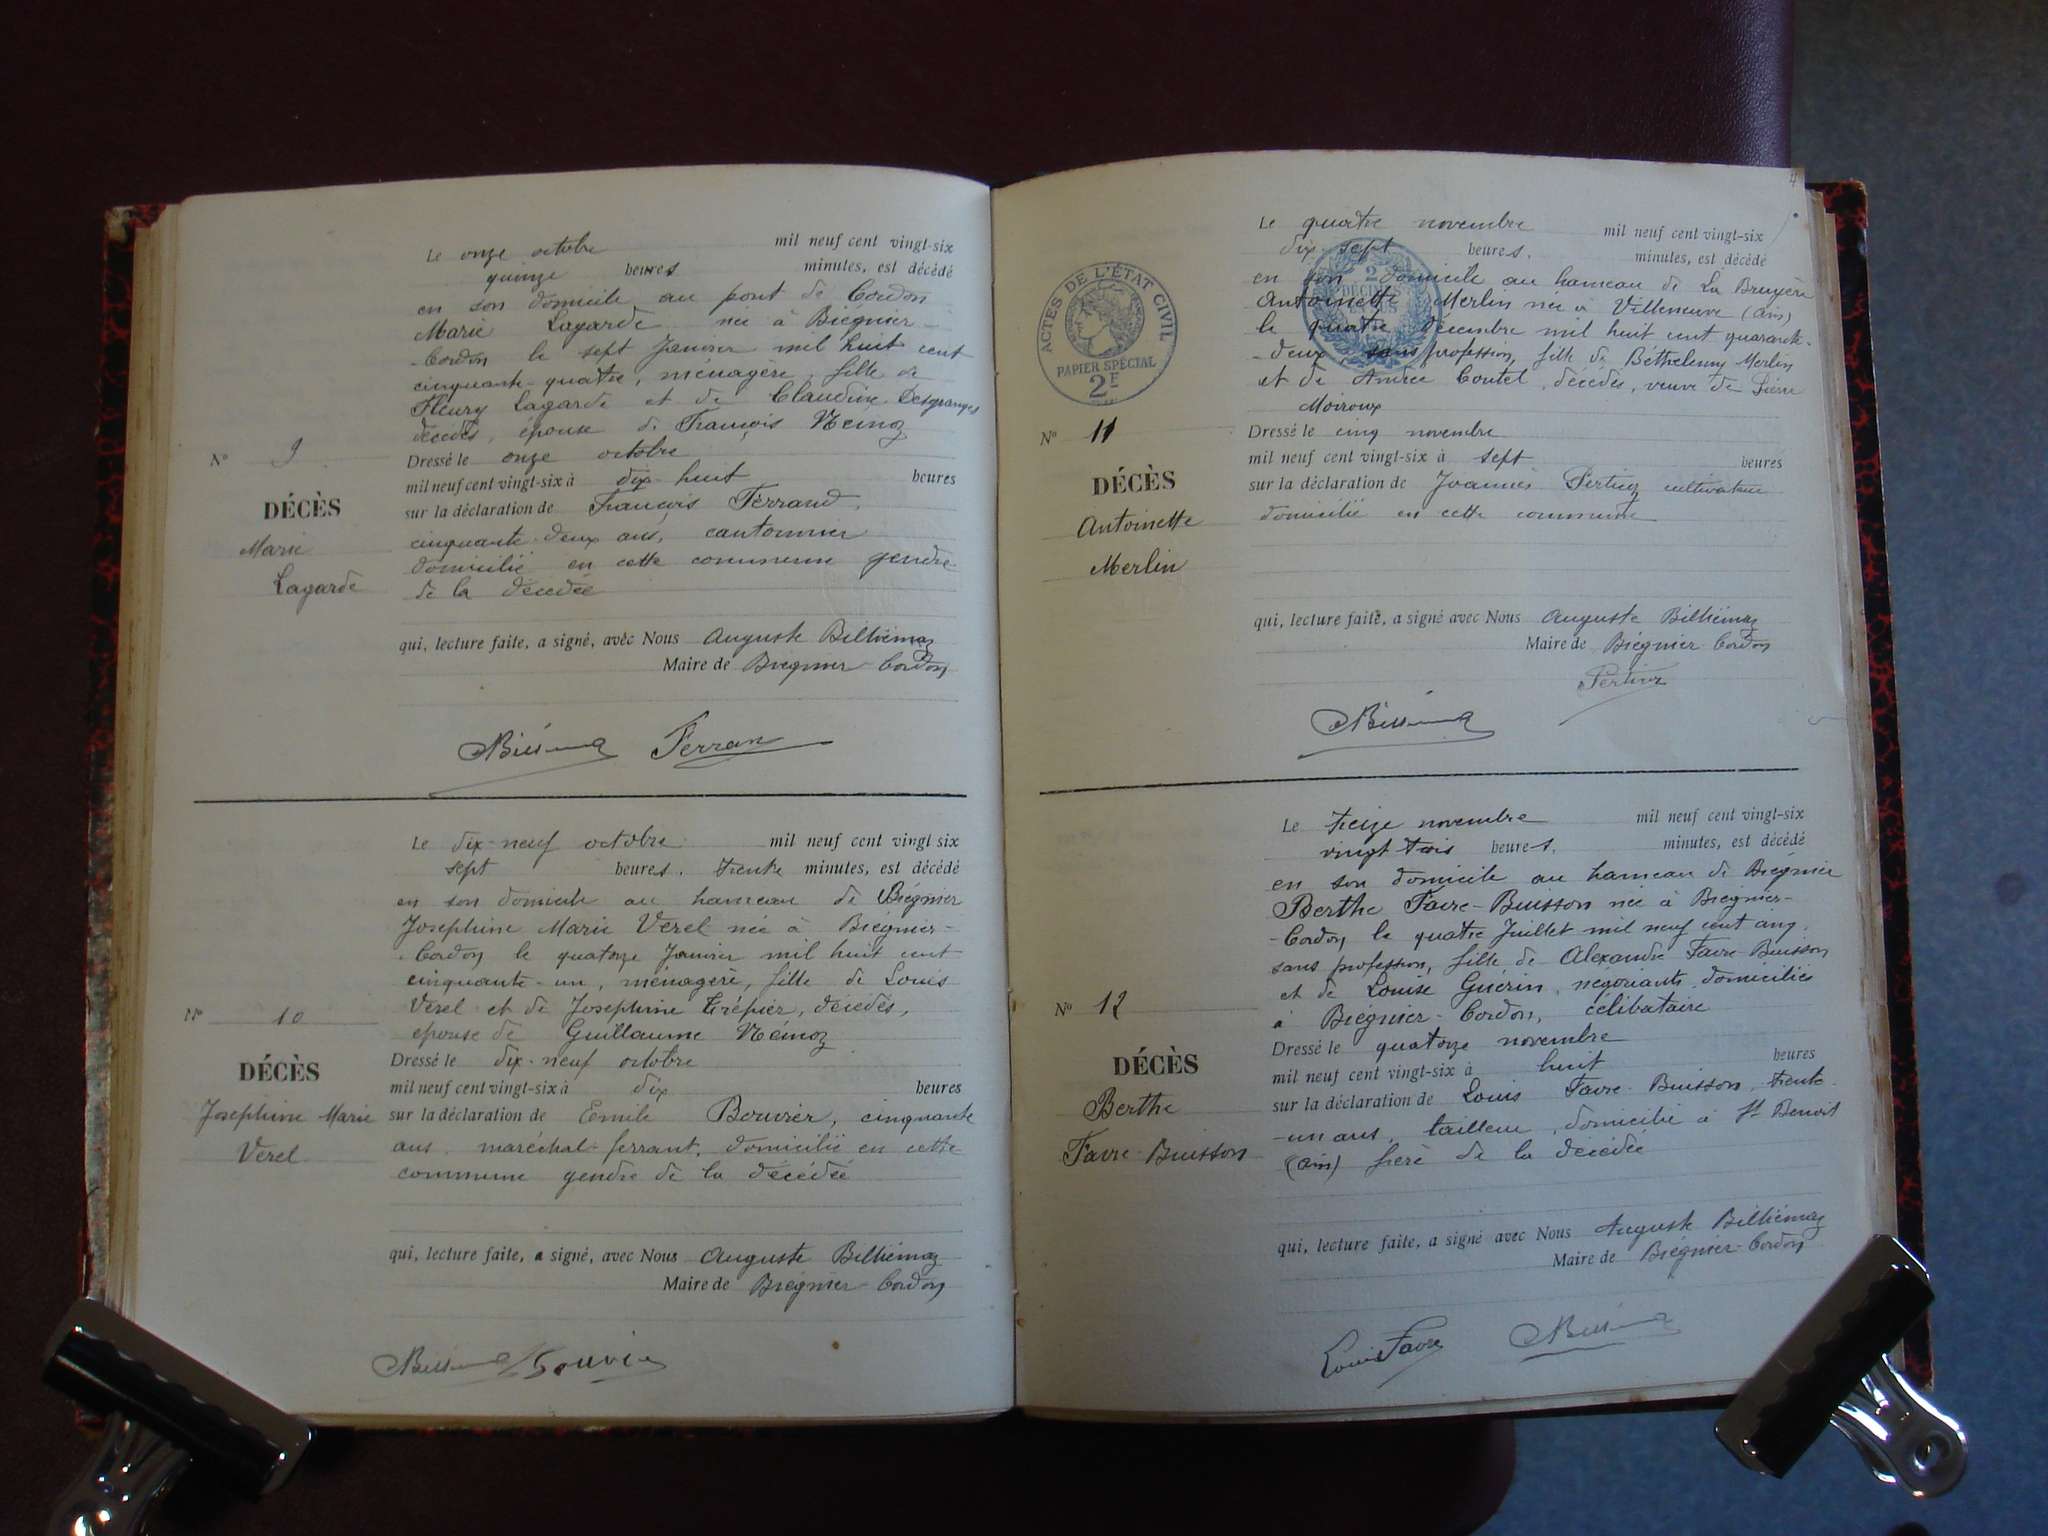 Le onze octobre mil neuf cent vingt-six
quinze heures minutes, est décédé
en son domicile au pont de Cordon
Marie Lagarde née à Brégnier-
-Cordon le sept Janvier mil huit cent
cinquante-quatre, ménagère, fille de
Fleury Lagarde et de Claudine Desgranges
décédés, épouse de François Némoz
N° 9
Dressé le onze octobre
mil neuf cent vingt-six à dix-huit heures
DÉCÈS
sur la déclaration de François Ferrand,
Marie
cinquante-deux ans, cantonnier
domicilié en cette commune gendre
Lagarde
de la décédée
qui, lecture faite, a signé, avec Nous Auguste Billiémaz
Maire de Brégnier-Cordon
Ferran
Le dix-neuf octobre mil neuf cent vingt-six
sept heures. trente minutes, est décédé
en son domicile au hameau de Brégnier
Josephine Marie Vérel née à Brégnier-
-Cordon le quatorze Janvier mil huit cent
cinquante-un, ménagère, fille de Louis
Vérel et de Josephine Trépier, décédés,
N° 10
épouse de Guillaume Némoz
Dressé le dix-neuf octobre
DÉCÈS
mil neuf cent vingt-six à dix heures
Josephine Marie
sur la déclaration de Emile Bouvier, cinquante
Verel
ans, maréchal-ferrant, domicilié en cette
commune gendre de la décédée
qui, lecture faite, a signé, avec Nous Auguste Billiémaz
Maire de Brégnier-Cordon
Bouvier
Le quatre novembre mil neuf cent vingt-six
dix-sept heures. minutes, est décédé
ACTES DE L'ÉTAT CIVIL
PAPIER SPÉCIAL
2F
2
DÉCIMES
EN SUS
en son domicile au hameau de La Bruyère
Antoinette Merlin née à Villeneuve (Ain)
le quatre décembre mil huit cent quarante-
-deux sans profession, fille de Merlin
et de Andrée Coutet, décédés, veuve de Pierre
Moiroux
N° 11
Dressé le cinq novembre
mil neuf cent vingt-six à sept heures
DÉCÈS
sur la déclaration de Joannès Pertiuz cultivateur
Antoinette
domicilié en cette commune
Merlin
qui, lecture faite, a signé avec Nous Auguste Billiémaz
Maire de Brégnier-Cordon
Pertiuz
Le treize novembre mil neuf cent vingt-six
vingt trois heures. minutes, est décédé
en son domicile au hameau de Brégnier
Berthe Favre-Buisson née à Brégnier-
-Cordon, le quatre Juillet mil neuf cent cinq,
sans profession, fille de Alexandre Favre-Buisson
et de Louise Guérin, négociants, domiciliés
N° 12
à Brégnier-Cordon, célibataire
Dressé le quatorze novembre
DÉCÈS
mil neuf cent vingt-six à huit heures
Berthe
sur la déclaration de Louis Favre-Buisson, trente-
Favre-Buisson
-un ans, tailleur, domicilié à St Benoit
(Ain) frère de la décédée
qui, lecture faite, a signé avec Nous Auguste Billiémaz
Maire de Brégnier-Cordon
Louis Favre